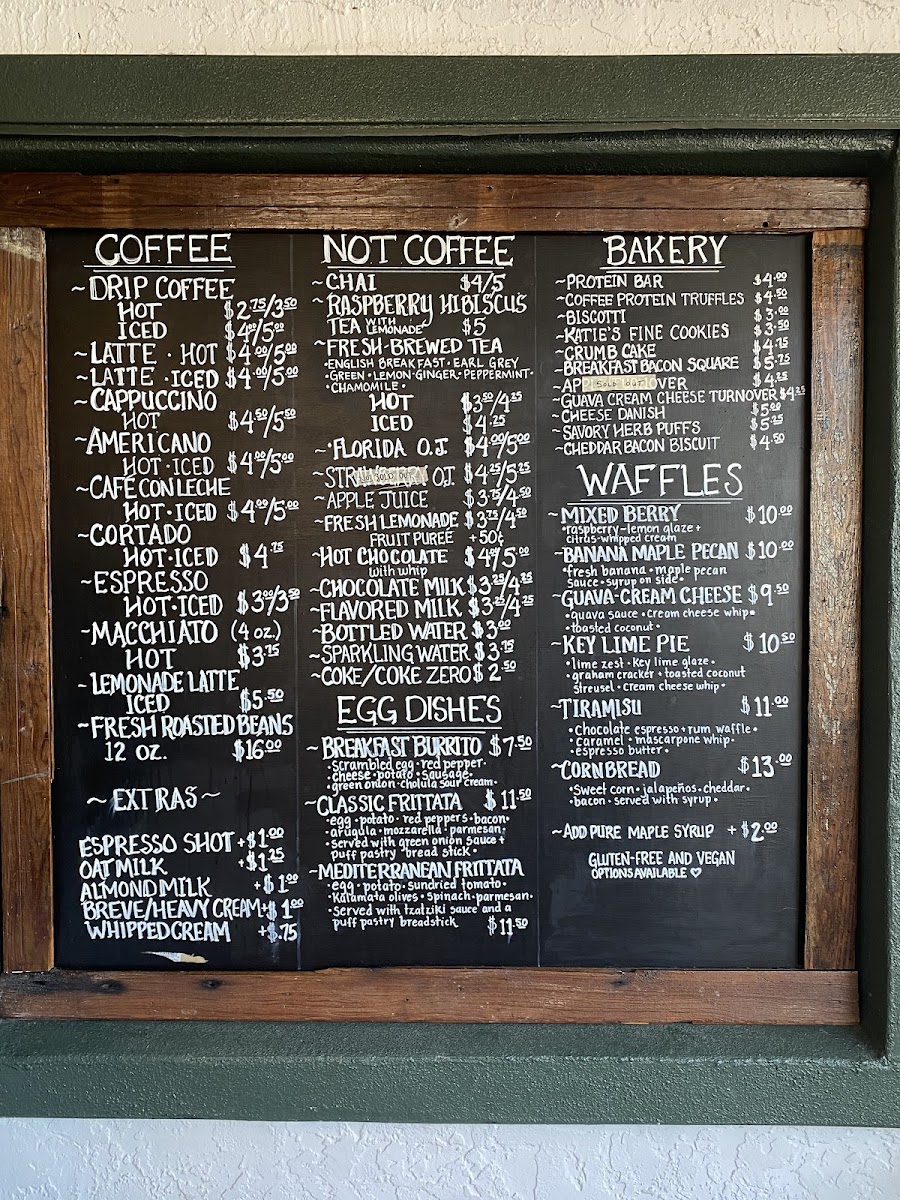 COFFEE
~DRIP COFFEE
HOT $2.75/3.50
ICED $4.00/5.00
~LATTE · HOT $4.00/5.00
~LATTE · ICED $4.00/5.00
~CAPPUCCINO
HOT $4.50/5.50
~AMERICANO
HOT·ICED $4.00/5.00
~CAFÉ CON LECHE
HOT·ICED $4.00/5.00
~CORTADO
HOT·ICED $4.75
~ESPRESSO
HOT·ICED $3.00/3.50
~MACCHIATO (4 oz.)
HOT $3.75
~LEMONADE LATTE
ICED $5.50
~FRESH ROASTED BEANS
12 OZ. $16.00
~EXTRAS~
ESPRESSO SHOT +$1.00
OAT MILK +$1.25
ALMOND MILK +$1.00
BREVE/HEAVY CREAM +$1.00
WHIPPED CREAM +$.75
NOT COFFEE
~CHAI $4/5
~RASPBERRY HIBISCUS
TEA WITH LEMONADE $5
~FRESH-BREWED TEA
·ENGLISH BREAKFAST·EARL GREY
·GREEN·LEMON·GINGER·PEPPERMINT·
·CHAMOMILE·
HOT $3.50/4.25
ICED $4.25
~·FLORIDA O.J. $4.00/5.00
~STR SOLD OUT O.J. $4.25/5.25
~APPLE JUICE $3.75/4.50
~FRESH LEMONADE $3.75/4.50
FRUIT PUREE +50¢
~HOT CHOCOLATE $4.00/5.00
with whip
~CHOCOLATE MILK $3.25/4.25
~FLAVORED MILK $3.25/4.25
~BOTTLED WATER $3.00
~SPARKLING WATER $3.75
~COKE/COKE ZERO $2.50
EGG DISHES
~BREAKFAST BURRITO $7.50
·scrambled egg·red pepper·
·cheese·potato·sausage·
·green onion·cholula sour cream·
~CLASSIC FRITTATA $11.50
·egg·potato·red peppers·bacon·
·arugula·mozzarella·parmesan·
·served with green onion sauce +
puff pastry bread stick·
~MEDITERRANEAN FRITTATA
·egg·potato·sundried tomato·
·Kalamata olives·spinach·parmesan·
·Served with tzatziki sauce and a
puff pastry breadstick $11.50
BAKERY
~PROTEIN BAR $4.00
~COFFEE PROTEIN TRUFFLES $4.50
~BISCOTTI $3.00
~KATIE'S FINE COOKIES $3.50
~CRUMB CAKE $4.75
~BREAKFAST BACON SQUARE $5.75
~AP SOLD OUT OVER $4.25
~GUAVA CREAM CHEESE TURNOVER $4.25
~CHEESE DANISH $5.00
~SAVORY HERB PUFFS $5.25
~CHEDDAR BACON BISCUIT $4.50
WAFFLES
~MIXED BERRY $10.00
·raspberry-lemon glaze +
citrus-whipped cream
~BANANA MAPLE PECAN $10.00
·fresh banana·maple pecan
sauce·syrup on side·
~GUAVA-CREAM CHEESE $9.50
·guava sauce·cream cheese whip·
·toasted coconut·
~KEY LIME PIE $10.50
·lime zest·key lime glaze·
·graham cracker+toasted coconut
streusel·cream cheese whip·
~TIRAMISU $11.00
·Chocolate espresso+rum waffle·
·caramel·mascarpone whip·
·espresso butter·
~CORNBREAD $13.00
·Sweet corn·jalapeños·cheddar·
·bacon·served with syrup·
~ADD PURE MAPLE SYRUP +$2.00
GLUTEN-FREE AND VEGAN
OPTIONS AVAILABLE ♡